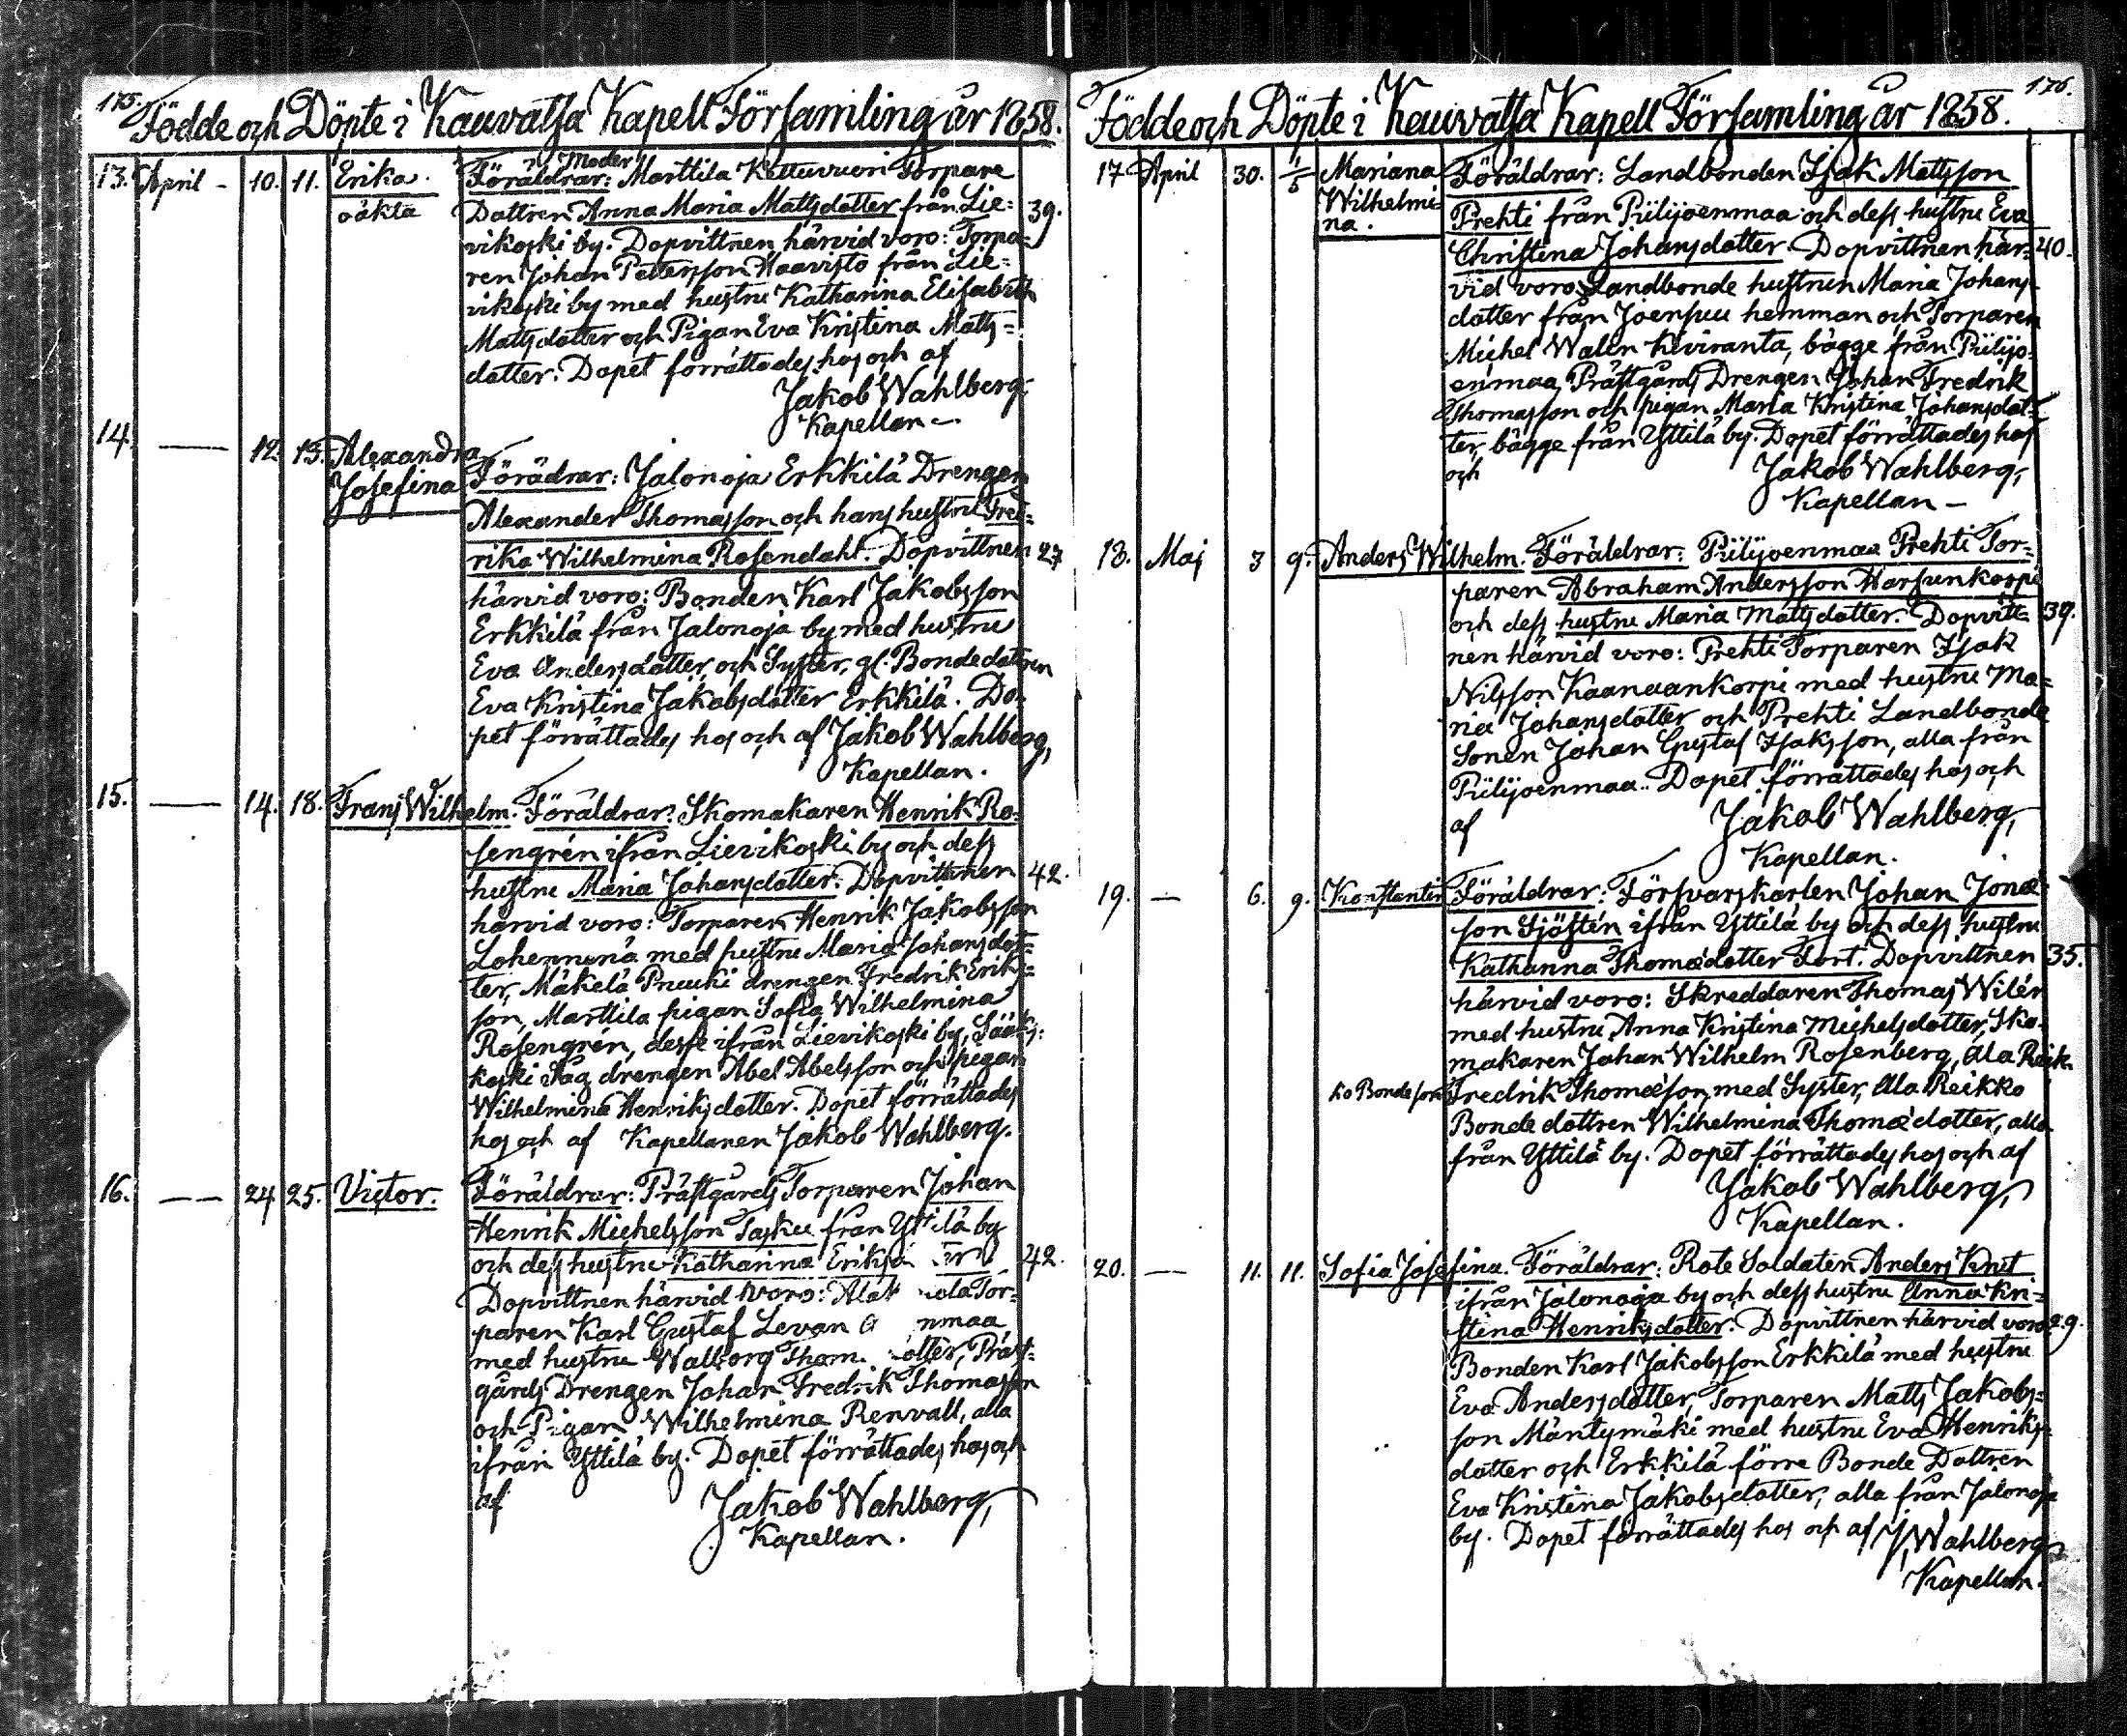 175.
Födde och Döpte i Kauvatsa Kapell Församling år 1858.
13. April - 10. 11. Erika. Föräldrar: Moder Marttila Kettuvuori Torpare
oäkta Dottren Anna Maria Mattsdotter från Lie= 39.
vikoski by. Dopvittnen härvid voro: Torpa=
ren Johan Pettersson Haavisto från Lie=
vikoski by med hustru Katharina Elisabeth
Mattsdotter och Pigan Eva Kristina Matts=
dotter. Dopet förrättades hos och af
Jakob Wahlberg,
Kapellan.
14. — 12. 13. Alexandra
Josefina Förädrar: Jalonoja Erkkilä Drengen
Alexander Thomasson och hans hustru Fred=
rika Wilhelmina Rosendahl. Dopvittnen 27
härvid voro: Bonden Karl Jakobsson
Erkkilä från Jalonoja by med hustru
Eva Andersdotter, och Syster, gl. Bondedottren
Eva Kristina Jakobsdotter Erkkilä. Do=
pet förrättades hos och af Jakob Wahlberg,
Kapellan.
15. — 14. 18. Frans Wilhelm. Föräldrar: Skomakaren Henrik Ro=
sengrén ifrån Lievikoski by och dess
hustru Maria Johansdotter. Dopvittnen 42.
härvid voro: Torparen Henrik Jakobsson
med hustru Maria Johansdot=
ter, Mäkelä Pruuki drengen Fredrik Eriks=
son, Marttila pigan Sofia Wilhelmina
Rosengrén, desse ifrån Lievikoski by, Sääks=
koski Såg drengen Abel Abelsson och pigan
Wilhelmina Henriksdotter. Dopet förrättades
hos och af Kapellanen Jakob Wahlberg.
16. — 24 25. Victor. Föräldrar: Prästgårds Torparen Johan
Henrik Michelsson Tasku från Yttilä by
och dess hustru Katharina Eriks 42.
Dopvittnen härvid voro: Tor=
paren Karl Gustaf Levan
med hustru Walborg Thom. otter, Präst=
gårds Drengen Johan Fredrik Thomasson
och Pigan Wilhelmina Renvall, alla
ifrån Yttilä by. Dopet förrättades hos och
af Jakob Wahlberg,
Kapellan.
176.
Födde och Döpte i Kauvatsa Kapell Församling år 1858.
17 April 30. 1/5 Mariana Föräldrar: Landbonden Isak Mattsson
Wilhelmi= Prehti från Piilijoenmaa och dess hustru Eva
na. Christina Johansdotter. Dopvittnen här= 40.
vid voro Landbonde hustrun Maria Johans=
dotter från Joensuu hemman och Torparen
Michel Walen Kiviranta, bägge från Piilijo=
enmaa, Prästgårds Drengen Johan Fredrik
Thomasson och pigan Maria Kristina Johansdot=
ter, bägge från Yttilä by. Dopet förrättades hos
och Jakob Wahlberg,
Kapellan
18. Maj 3 9. Anders Wilhelm. Föräldrar: Piilijoenmaa Prehti Tor=
paren Abraham Andersson Harsunkorpi
och dess hustru Maria Mattsdotter. Dopvitt= 39.
nen härvid voro: Prehti Torparen Isak
Nilsson Kaanaankorpi med hustru Ma=
ria Johansdotter och Prehti Landbonde
Sonen Johan Gustaf Isaksson, alla från
Piilijoenmaa. Dopet förrättades hos och
af Jakob Wahlberg,
Kapellan.
19. — 6. 9. Konstantin Föräldrar: Försvarskarlen Johan Jonæ=
son Sjöstén ifrån Yttilä by och dess hustru
Katharina Thomædotter Fort. Dopvittnen 35.
härvid voro: Skreddaren Thomas Wilér
med hustru Anna Kristina Michelsdotter, Sko=
makaren Johan Wilhelm Rosenberg, Ala Reik=
ko Bonde son Fredrik Thomæson, med Syster, Ala Reikko
Bonde dottren Wilhelmina Thomædotter, alla
från Yttilä by. Dopet förrättades hos och af
Jakob Wahlberg,
Kapellan.
20. — 11. 11. Sofia Josefina. Föräldrar: Rote Soldaten Anders Knut
ifrån Jalonoja by och dess hustru Anna Kri=
stina Henriksdotter. Dopvittnen härvid voro: 29.
Bonden Karl Jakobsson Erkkilä med hustru
Eva Andersdotter, Torparen Matts Jakobs=
son Mäntymäki med hustru Eva Henriks=
dotter och Erkkilä förre Bonde Dottren
Eva Kristina Jakobsdotter, alla från Jalonoja
by. Dopet förrättades hos och af J. Wahlberg
Kapellan.